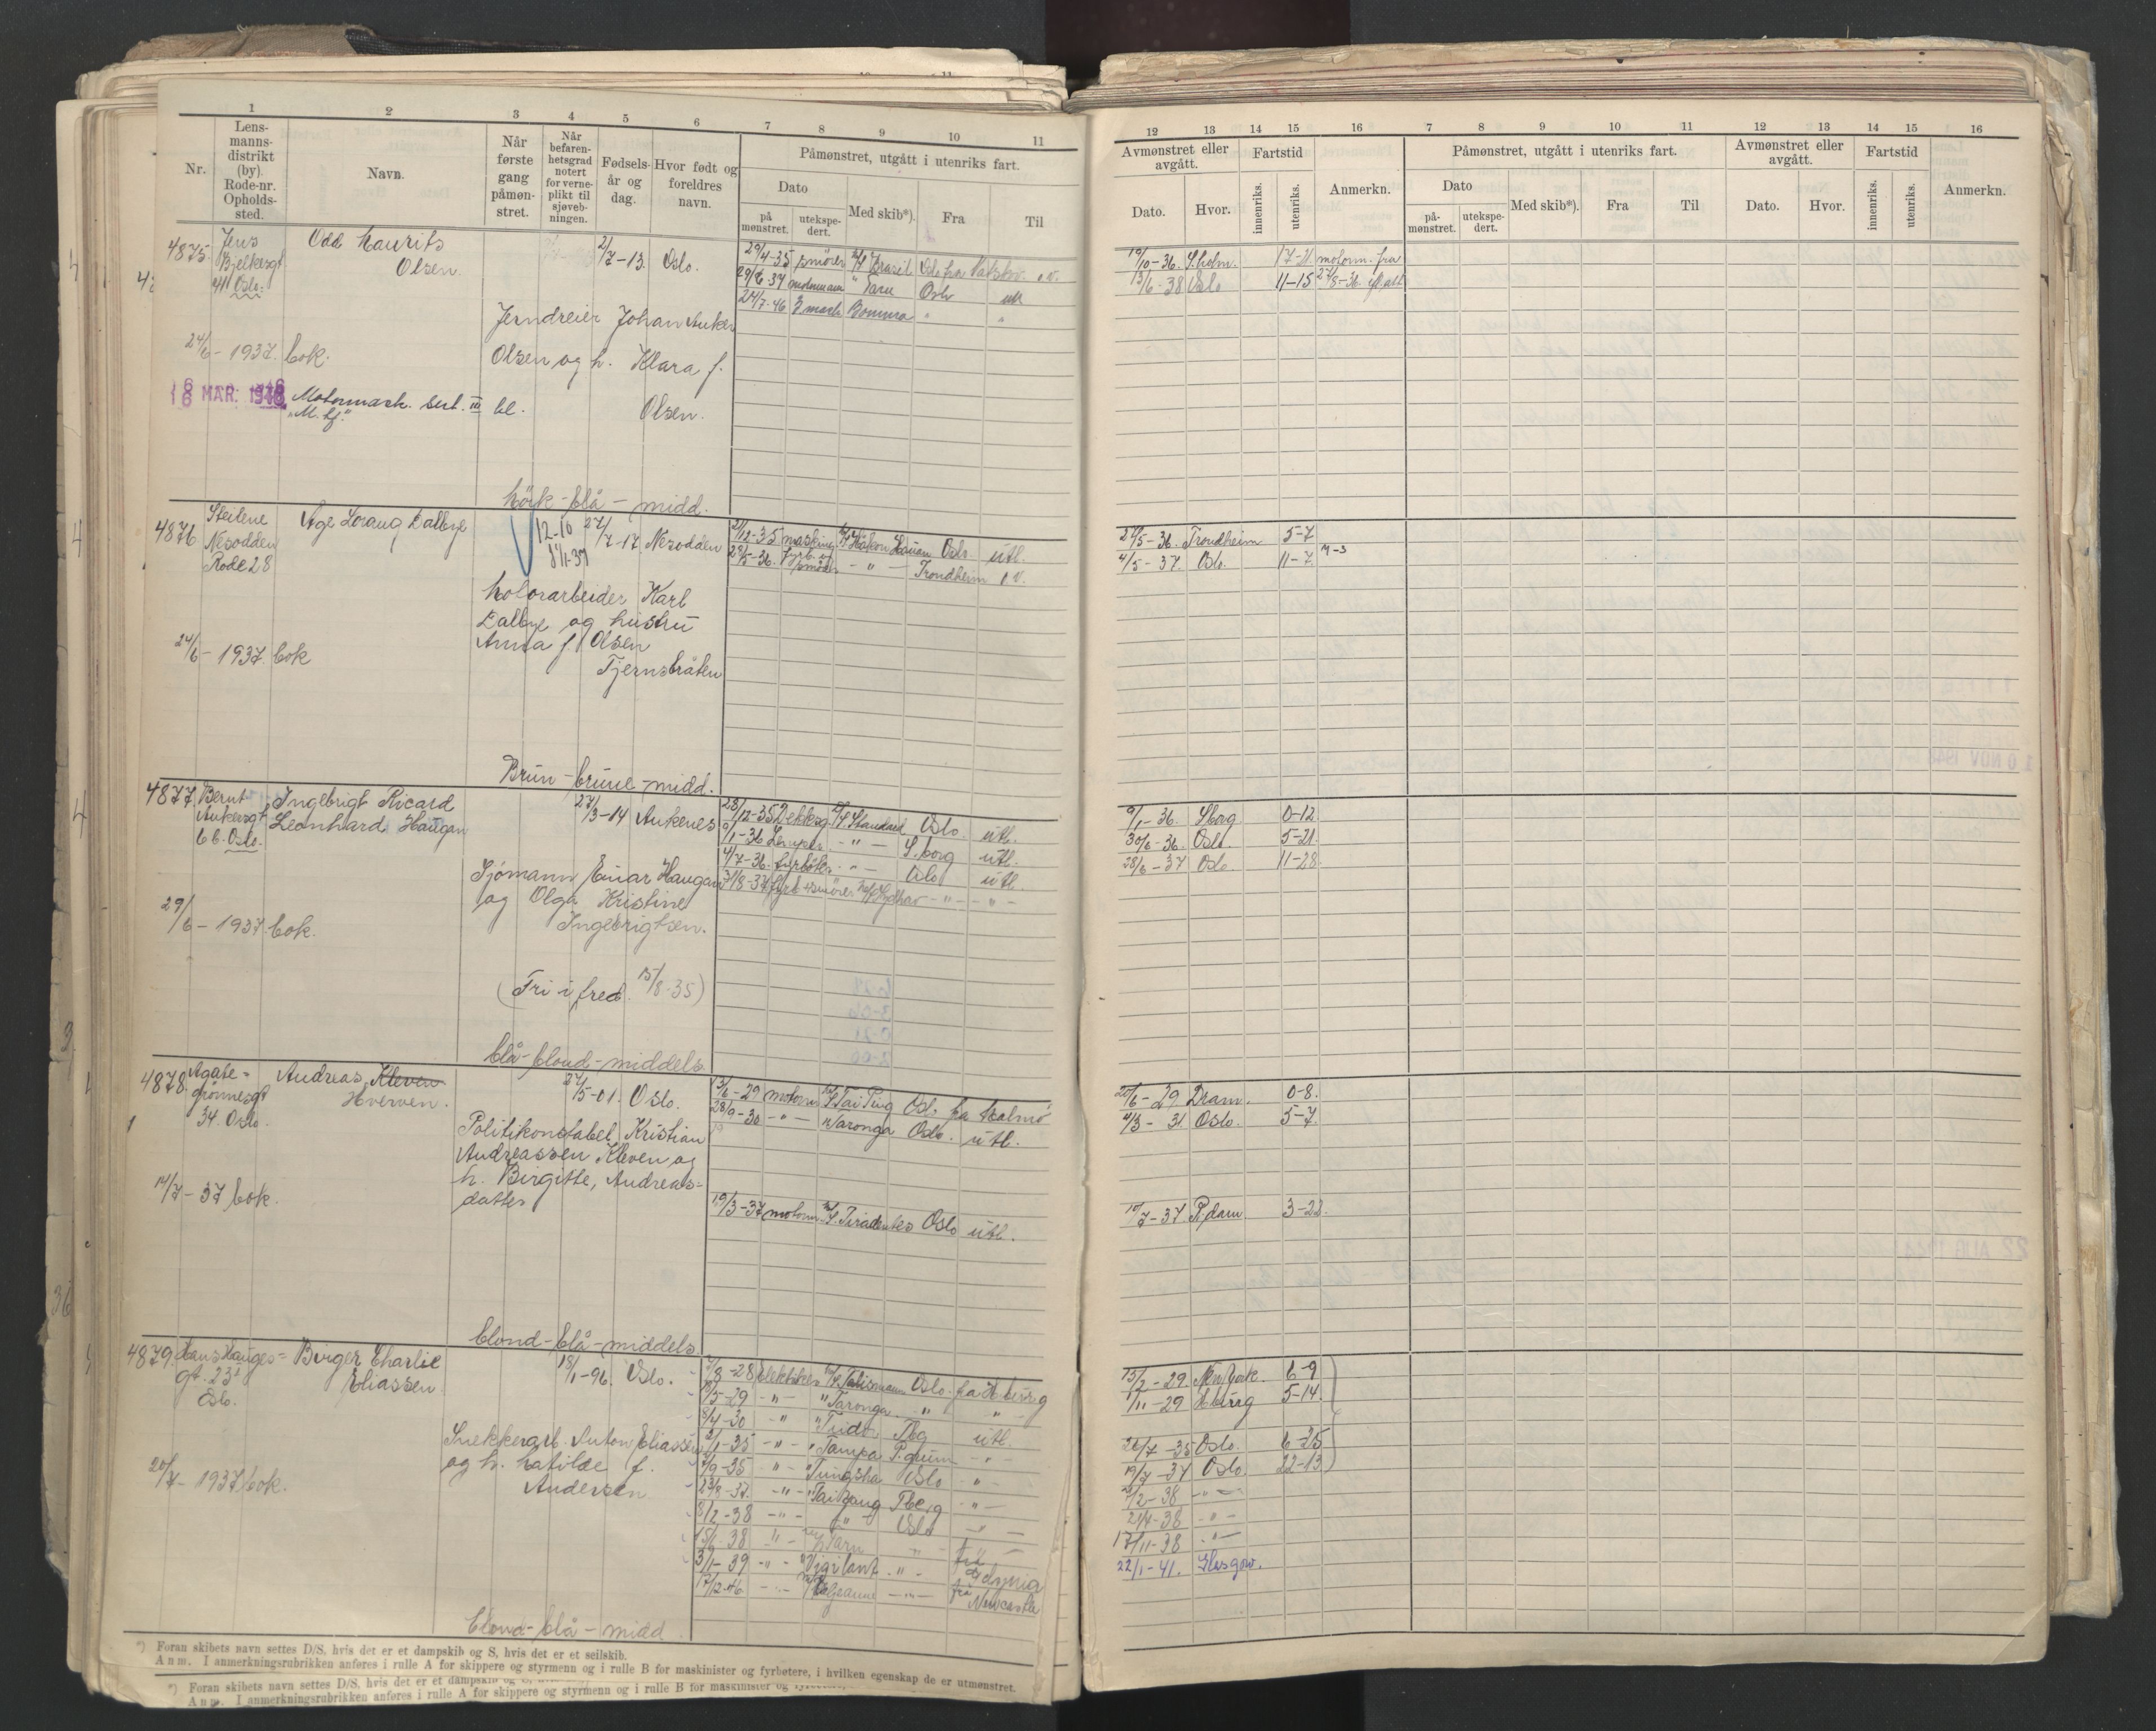 1 2 3 4 5 6 7 8 9 10 11
Nr.
Lensmanns-distrikt (by). Rode-nr. Opholds-sted.
Navn.
Når første gang påmøn-stret.
Når befaren-hetsgrad notert for verne-plikt til sjøveb-ningen.
Fødsels-år og dag.
Hvor født og foreldres navn.
Påmønstret, utgått i utenriks fart.
Dato
på mønstret.
utekspe-dert.
Med skib*).
Fra
Til
12 13 14 15 16 7 8 9 10 11 12 13 14 15 16
Avmønstret eller avgått.
Dato.
Hvor.
Fartstid
innenriks.
utenriks.
Anmerkn.
Påmønstret, utgått i utenriks fart.
Dato
på-mønstret.
utekspe-dert.
Med skib*).
Fra
Til
Avmønstret eller avgått.
Dato.
Hvor.
Fartstid
innenriks.
utenriks.
Anmerkn.
4875. Jens Bjelkesgt. 41 Oslo.
Odd Laurits Olsen
2/7-13. Oslo.
29/4-35 smører M/S Brasil Oslo
29/6-37 motormann " Tara Oslo utl
24/7-46 3 mask. Bomma " "
19/10-36. S.holm. 17-21 motorm. fra
13/6-38 Oslo 11-15 27/8-36.
Jerndreier Johan Anker
Olsen og h. Klara f.
Olsen.
24/6-1937. bok.
MAR. 1946
Motormask. sert. III kl.
Mörk-blå-midd.
4876 Steilene Nesodden Rode 28
Åge Loraug Dalbye
12-10
8/1-37
27/7-17. Nesodden
2/12-35 D/S Håkon Hauan Oslo utl.
28/5-36. Fyrb. og smører -"- Trondheim
27/5-36. Trondheim 5-7
4/5-37. Oslo. 11-7
Kolorarbeider Karl
Dalbye og hustru
Anna f. Olsen
Tjernsbråten
24/6-1937. bok
Brun-brune-midd.
4877. Bernt Ankersgt 6 b. Oslo.
Ingebrigt Ricard
Leonhard Haugan
27/3-14 Ankenes
28/12-35 Dekksg. D/S Standard Oslo. utl.
9/1-36 -"- S.borg utl.
4/7-36. fyrbøter -"- Oslo utl.
31/8-37 fyrb.+smører Sydhav -"- -"-
9/1-36. Sborg 0-12
30/6-36. Oslo. 5-21.
28/6-37 Oslo. 11-28.
Sjømann Einar Haugan
og Olga Kristine
Ingebrigtsen.
29/6-1937. bok.
(Fri i fred. 15/8-35)
blå-blond-middels
4878. Agate-grønnesgt 34. Oslo.
Andreas Kleven
Hverven.
27/5-01. Oslo.
13/6-29 motorm M/S Tai Ping Osl. fra Malmö
28/9-30 -"- Taronga Oslo. utl.
20/6-29 Dram. 0-8.
4/3-31 Oslo. 5-7.
Politikonstabel Kristian
Andreassen Kleven og
h. Birgitte, Andreas-
datter
14/7-37 bok.
19/3-37 motorm. M/S Tiradentes Oslo utl.
10/7-37 R.dam. 3-22.
blond-blå-middels
4879. Hans Hauges-gt. 23 Oslo.
Birger Charlie
Eliassen
18/1-96. Oslo.
7/8-28 elektriker M/S Talisman Oslo-fra Hburg
-"- " Taronga " "
8/4-30 -"- " Tudor Tbg utl.
2/1-35 -"- " Tampa P.grunn -"-
-"- " Tungsha Oslo -"-
23/8-37. -"- " Tai Yang Tberg -"-
8/2-38 -"- -"- Oslo -"-
15/6-38 -"- Tarn " "
3/1-39 -"- " Vigilant -"- til Gdynia
17/12-46 -"- Beljeanne -"- fra Newcastle
15/2-29. New York. 6-9
1/11-29 Hburg 5-14.
26/7-35 Oslo. 6-25
19/7-37 Oslo. 22-13
2/2-38 -"-
21/4-38 -"-
17/11-38 -"-
22/1-41. Glasgow.
Snekkerarb. Anton Eliassen
og h. Matilde f.
Andersen
20/7-1937 bok.
blond-blå-midd
*) Foran skibets navn settes D/S, hvis det er et dampskib og S, hvis det er et seilskib.
Anm. I anmerkningsrubrikken anføres i rulle A for skippere og styrmenn og i rulle B for maskinister og fyrbøtere, i hvilken egenskap de er utmønstret.
*) Foran skibets navn settes D/S, hvis det er et dampskib og S,
Anm. I anmerkningsrubrikken anføres i rulle A for skippere og styrmenn og i rulle B for maskinister og